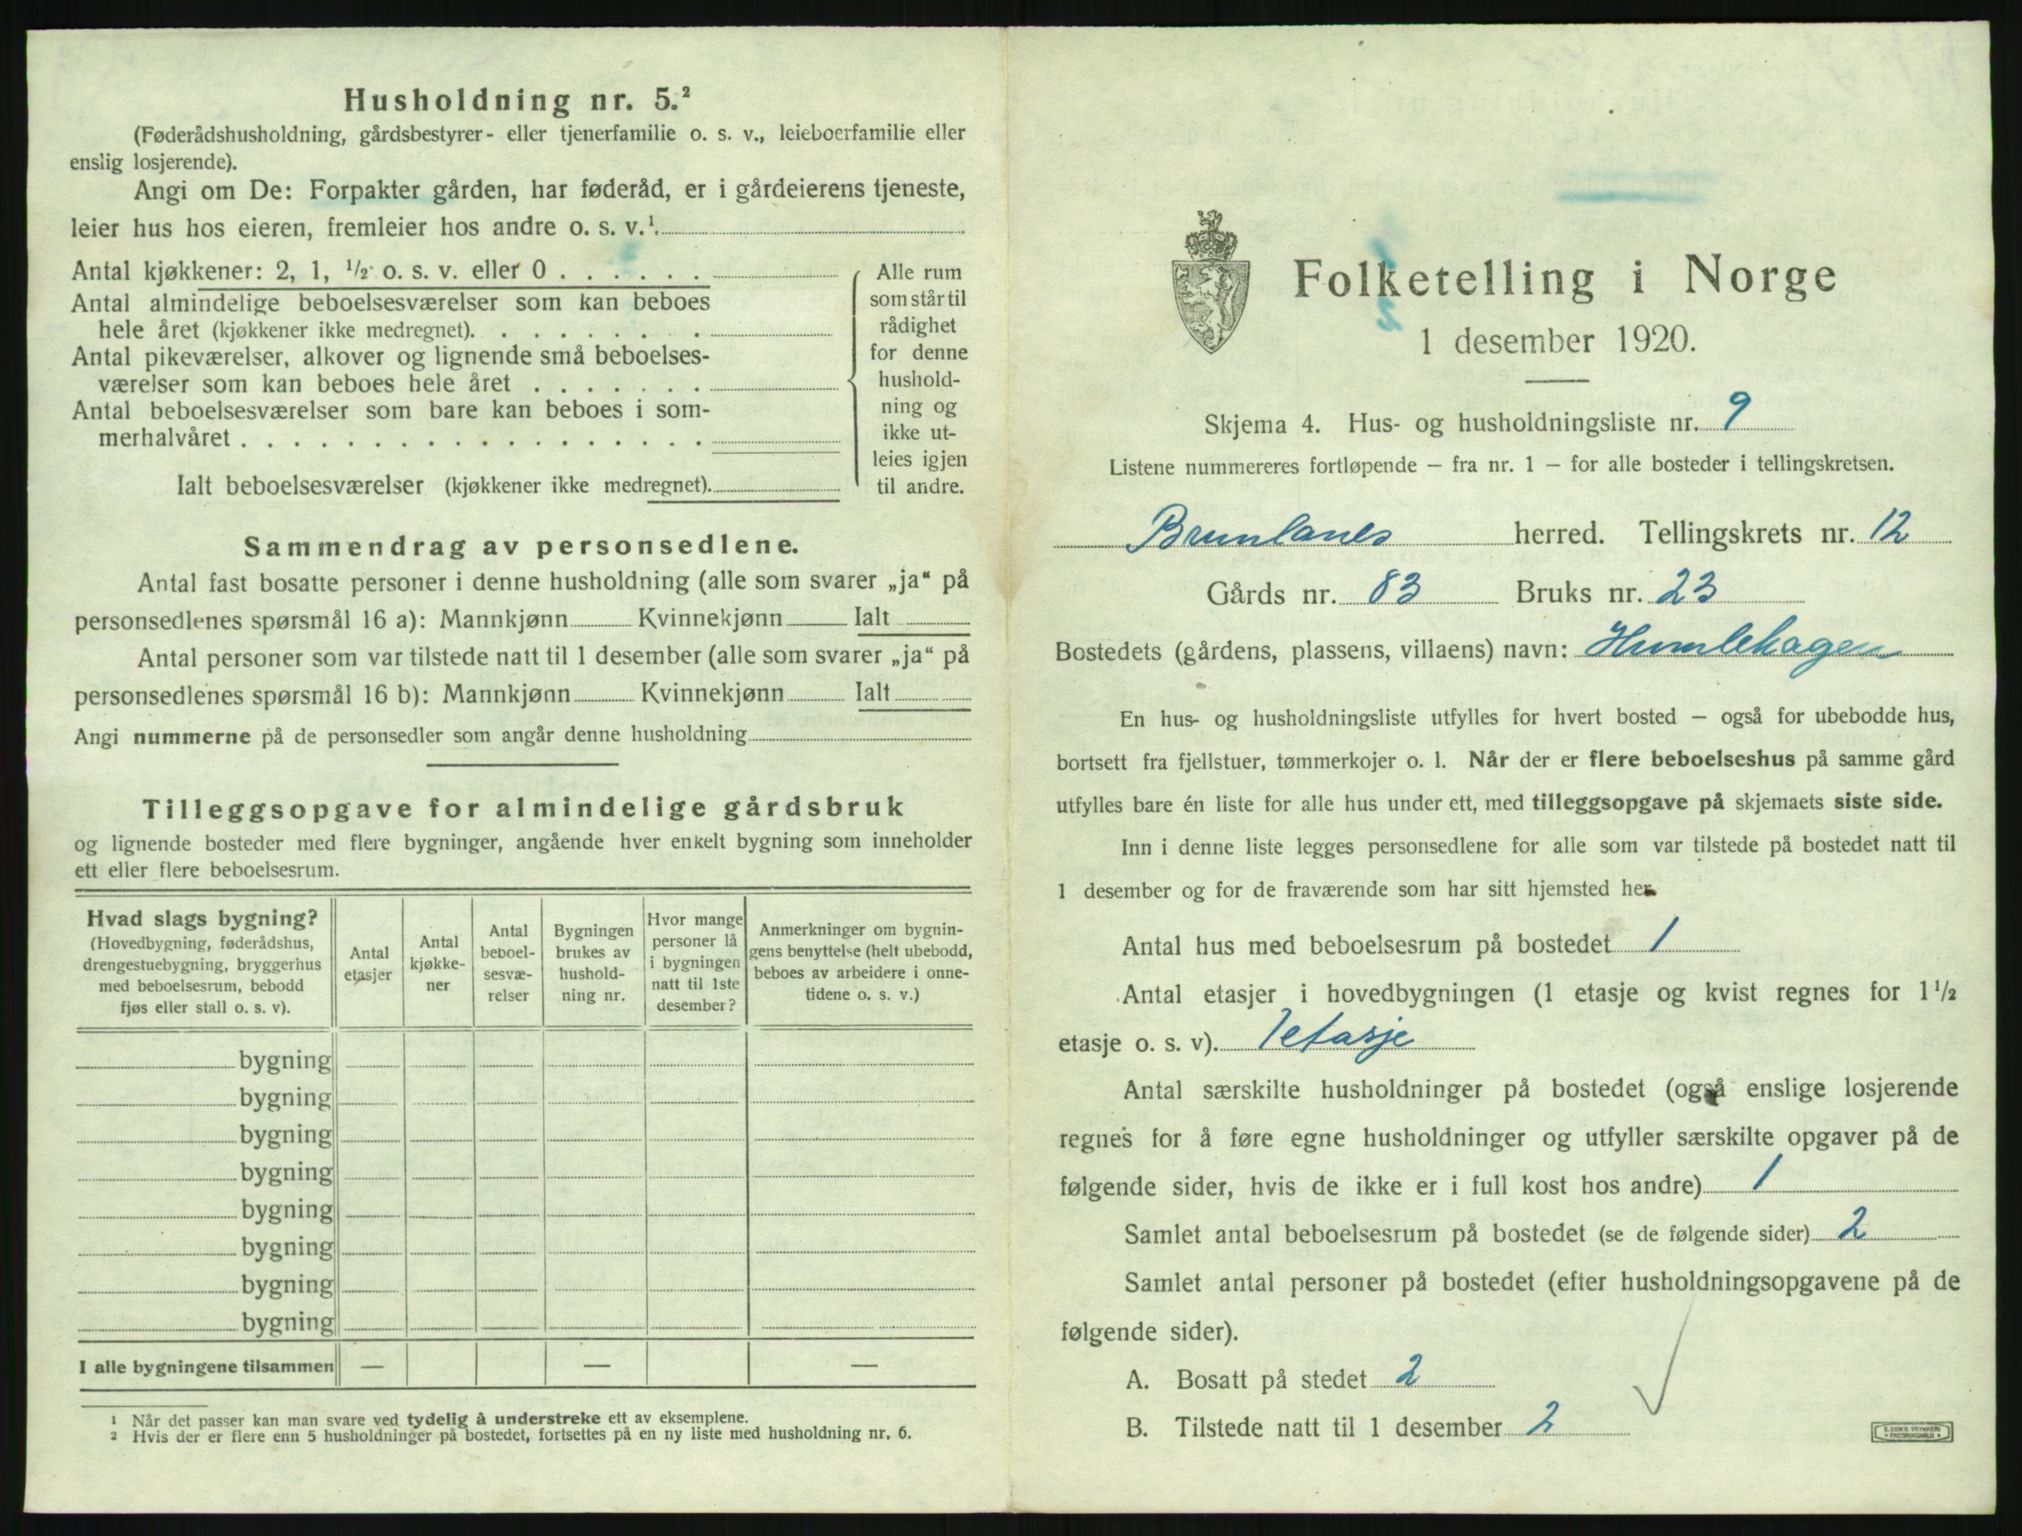 Husholdning nr. 5.²
(Føderådshusholdning, gårdsbestyrer- eller tjenerfamilie o. s. v., leieboerfamilie eller
enslig losjerende).
Angi om De: Forpakter gården, har føderåd, er i gårdeierens tjeneste,
leier hus hos eieren, fremleier hos andre o. s. v.¹.
Antal kjøkkener: 2, 1, ½ o. s. v. eller 0 . . . . . .
Antal almindelige beboelsesværelser som kan beboes
hele året (kjøkkener ikke medregnet). . . . . . . . .
Antal pikeværelser, alkover og lignende små beboelses-
værelser som kan beboes hele året . . . . . . .
Antal beboelsesværelser som bare kan beboes i som-
merhalvåret . . . . . . . . . . . . . . . . . .
Ialt beboelsesværelser (kjøkkener ikke medregnet).
Alle rum
som står til
rådighet
for denne
hushold-
ning og
ikke ut-
leies igjen
til andre.
Sammendrag av personsedlene.
Antal fast bosatte personer i denne husholdning (alle som svarer „ja“ på
personsedlenes spørsmål 16 a): Mannkjønn Kvinnekjønn Ialt
Antal personer som var tilstede natt til 1 desember (alle som svarer „ja“ på
personsedlenes spørsmål 16 b): Mannkjønn Kvinnekjønn Ialt
Angi nummerne på de personsedler som angår denne husholdning
Tilleggsopgave for almindelige gårdsbruk
og lignende bosteder med flere bygninger, angående hver enkelt bygning som inneholder
ett eller flere beboelsesrum.
Hvad slags bygning?
(Hovedbygning, føderådshus,
drengestuebygning, bryggerhus
med beboelsesrum, bebodd
fjøs eller stall o. s. v).
Antal
etasjer
Antal
kjøkke-
ner
Antal
beboel-
sesvæ-
relser
Bygningen
brukes av
hushold-
ning nr.
Hvor mange
personer lå
i bygningen
natt til 1ste
desember?
Anmerkninger om bygnin-
gens benyttelse (helt ubebodd,
beboes av arbeidere i onne-
tidene o. s. v.)
bygning
bygning
bygning
bygning
bygning
bygning
bygning
bygning
I alle bygningene tilsammen — — —
¹ Når det passer kan man svare ved tydelig å understreke ett av eksemplene.
² Hvis der er flere enn 5 husholdninger på bostedet, fortsettes på en ny liste med husholdning nr. 6.
Folketelling i Norge
1 desember 1920.
Skjema 4. Hus- og husholdningsliste nr. 9
Listene nummereres fortløpende — fra nr. 1 — for alle bosteder i tellingskretsen.
Brunlanes herred. Tellingskrets nr. 12
Gårds nr. 83 Bruks nr. 23
Bostedets (gårdens, plassens, villaens) navn: Humlehagen
En hus- og husholdningsliste utfylles for hvert bosted — også for ubebodde hus,
bortsett fra fjellstuer, tømmerkojer o. l. Når der er flere beboelseshus på samme gård
utfylles bare én liste for alle hus under ett, med tilleggsopgave på skjemaets siste side.
Inn i denne liste legges personsedlene for alle som var tilstede på bostedet natt til
1 desember og for de fraværende som har sitt hjemsted her.
Antal hus med beboelsesrum på bostedet 1
Antal etasjer i hovedbygningen (1 etasje og kvist regnes for 1½
etasje o. s. v). 1 etasje
Antal særskilte husholdninger på bostedet (også enslige losjerende
regnes for å føre egne husholdninger og utfyller særskilte opgaver på de
følgende sider, hvis de ikke er i full kost hos andre) 1
Samlet antal beboelsesrum på bostedet (se de følgende sider) 2
Samlet antal personer på bostedet (efter husholdningsopgavene på de
følgende sider).
A. Bosatt på stedet 2
B. Tilstede natt til 1 desember 2